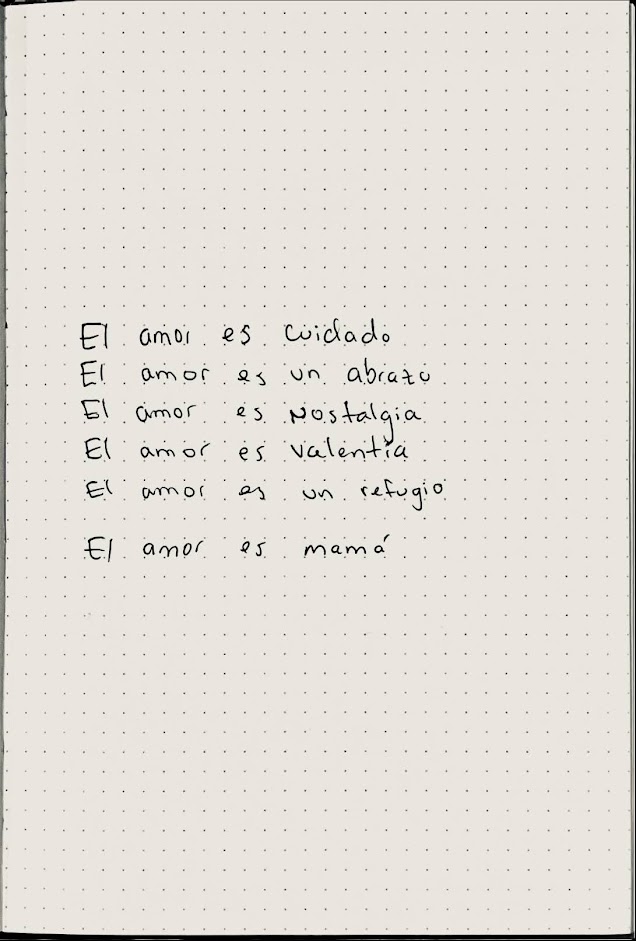 El amor es cuidado
El amor es un abrazo
El amor es Nostalgia
El amor es valentía
El amor es un refugio
El amor es mamá